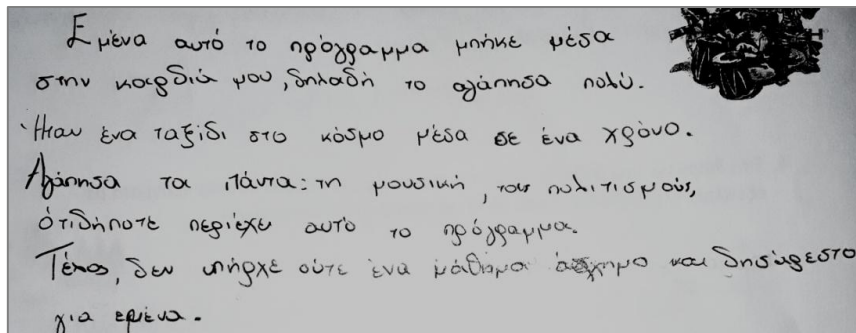 Εμένα αυτό το πρόγραμμα μπήκε μέσα
στην καρδιά μου, δηλαδή το αγάπησα πολύ.
Ήταν ένα ταξίδι στο κόσμο μέσα σε ένα χρόνο.
Αγάπησα τα πάντα: τη μουσική, τους πολιτισμούς,
ότιδήποτε περιέχει αυτό το πρόγραμμα.
Τέλος, δεν υπήρχε ούτε ένα μάθημα άσχημο και δησάρεστο
για εμένα.